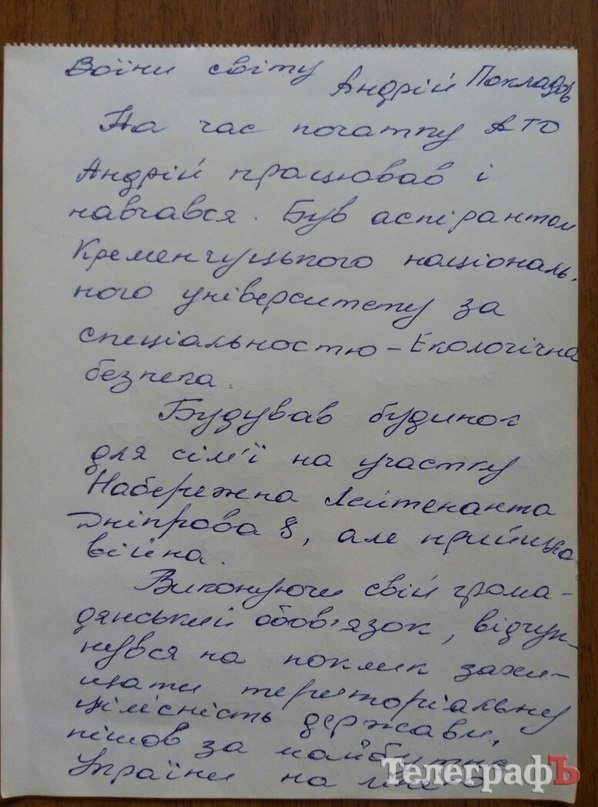 Воїни світу Андрій Поклад
На час початку АТО
Андрій працював і
навчався. Був аспірантом
Кременчуцького національ-
ного університету за
спеціальностю - Екологічна
безпека.
Будував будинок
для сім'ї на участку
Набережна Лейтенанта
Дніпрова 8, але прийшла
війна.
Виконуючи свій грома-
дянський обов'язок, відгук-
нувся на поклик захи-
щати територіальну
цілісність держави,
пішов за майбутнє
України на
ТелеграфЪ